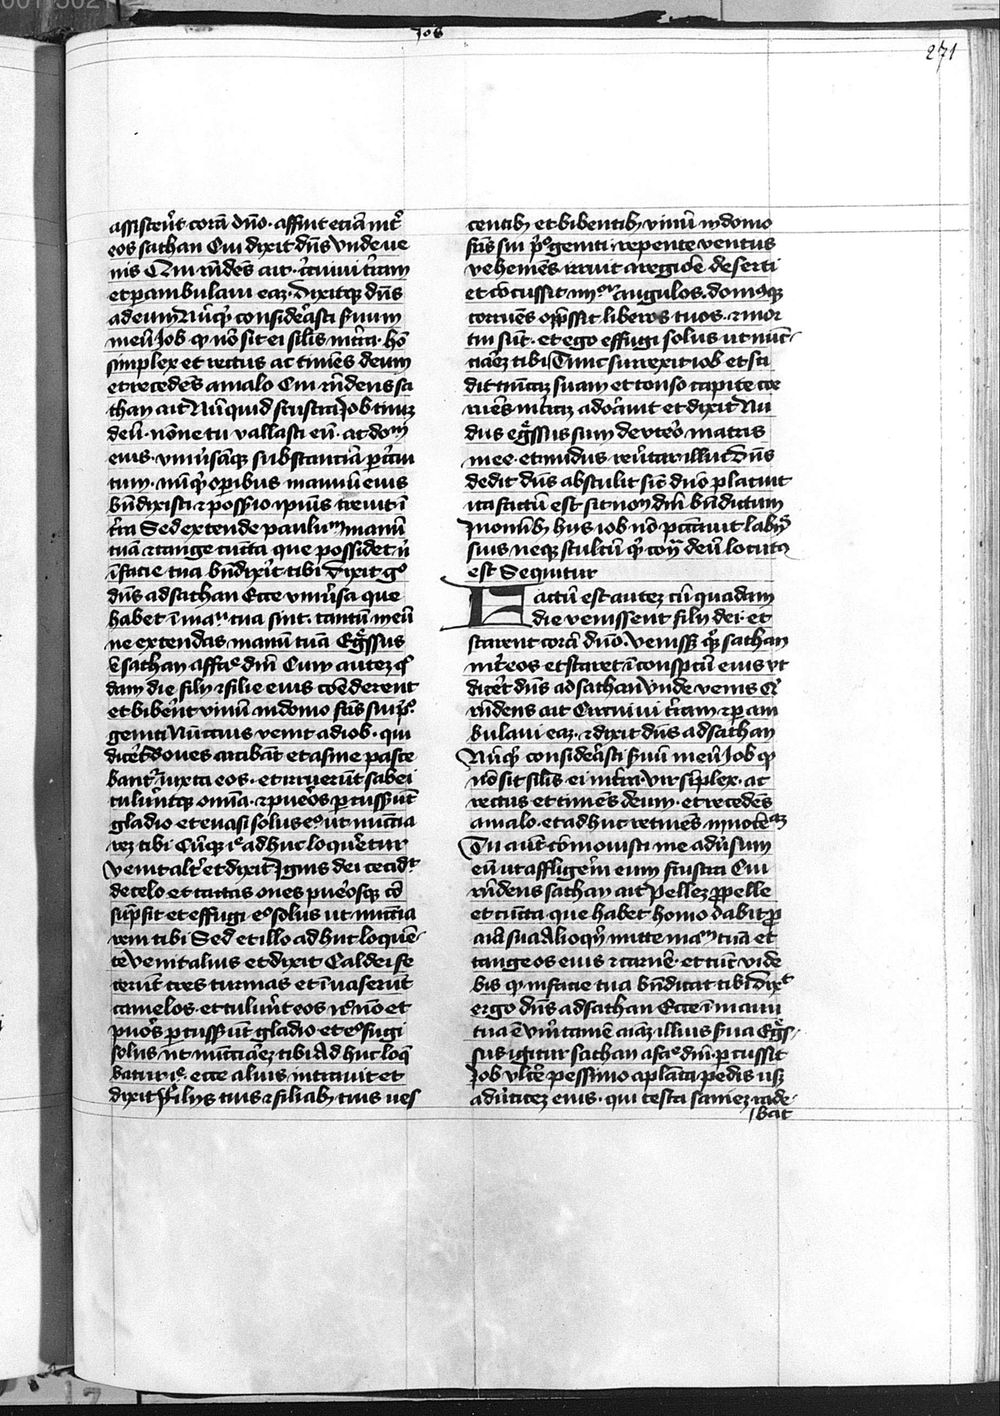 Job
271
assistēt corā dn̄o · affuit etiā int̾
eos sathan Cui dixit dn̄s Vnde ue
nis Qui rn̄dēs ait · Circuivi t̾ram
et perambulavi eaz · Dixitqz dn̄s
ad eum Nūqd̾ considerasti ẜvum
meū Job qꝫ nō sit ei sil̾is in t̾ra · hō
simplex et rectus ac timēs deum
et recedēs a malo Cui rn̄dens sa
than ait Nūquid frustra Job timꝫ
deū · nōne tu vallasti eū · ac domū
eius · vniu̾sāqꝫ substantiā p circui
tum · nūqd̾ operibus manuū eius
bn̄dixisti ⁊ possessio ipius crevit ī
t̾ra Sed extende paululum manū
tuā ⁊ tange cuncta que possidet nⁱ
ī facie tua bn̄dixit tibi Dixit gͦ
dn̄s ad sathan Ecce vniu̾sa que
habet ī manu tua sint · tantū meū
ne extendas manum tuā Egressus
ē sathan a facie dn̄i Cum autez qͣ
dam die filij ⁊ filie eius comederent
et biberēt vinū in domo fr̄is sui pͥmo
geniti Nuncius venit ad iob · qui
diceret Boves arabāt et asine pasce
bant̾ iuxta eos · et irruerūt sabei
tulerūtqꝫ omn̄ia · ⁊ pueros percusserūt
gladio et evasi solus egͦ ut nuncia
rez tibi Cūqꝫ adhuc loqueretur
venit alt̾ et dixit Ignis dei cecidͭ
de celo et tactas oves puerosqꝫ cō
sūpsit et effugi egͦ solus ut nuncia
rem tibi Sed et illo adhuc loquē
te Venit alius et dixit Caldei fe
cerūt tres turmas et īvaserūt
camelos · et tulerūt eos nͨnō et
pueros percusserūt gladio · et egͦ fugi
solus ut nunciarez tibi Adhuc loq
batur · ecce alius intravit et
dixit Filijs tuis ⁊ filiabꝫ tuis ves
centibꝫ et bibentibꝫ vinū in domo
fr̄is sui pͥmogeniti · repente ventus
vehemēs irruit a regiōe deserti
et cōcussit iiijͦʳ angulos · domꝯqꝫ
corruēs opp̄ssit liberos tuos · ⁊ mor
tui sūt · et ego effugi solus ut nūt
ciarez tibi Tunc surrexit iob et sci
dit tunicaz suam et tonso capite cor
ruēs in t̾raz adoravit et dixit Nu
dus egressus sum de utero matris
mee · et nudus revertar illuc Dn̄s
dedit dn̄s abstulit sicut dn̄o placuit
ita factū est sit nomē dn̄i bn̄dictum
In omībꝫ hiis iob nō peccavit labijs
suis neqꝫ stultū qd̾ contra deū locutꝯ
est Sequitur
Factū est autez cū quadam
die venissent filij dei · et
starent corā dn̄o · Venisset qꝫ sathan
int̾ eos et staret ī conspectu eius ut
diceret dn̄s ad sathan Vnde venis Qui
rn̄dens ait Circuivi t̾ram ⁊ peram
bulavi eaz · ⁊ dixit dn̄s ad sathan
Nūqd̾ considerasti ẜvum meū Job qꝫ
nō sit sil̾is ei in t̾ra · vir simplex · ac
rectus et timēs deum · et recedēs
a malo · et adhuc retinēs innocēaz
Tu autē cōmovisti me adu̾sum
eū ut affligerem eum frustra Cui
rn̄dens sathan ait Pellez p pelle
et cūcta que habet homo dabit p
aīa sua Alioqn̄ mitte manū tuā et
tange os eius ⁊ carnē · et tūc vide
bis qꝫ in facie tua bn̄dicat tibi Dixͭ
ergo dn̄s ad sathan Ecce ī manu
tua ē veru̾tamē aīaz illius ẜva Egres
sus igitur sathan a facie dn̄i percussit
Job ulcere pessimo a planta pedis usqꝫ
ad verticez eius · qui testa saniez rade
bat